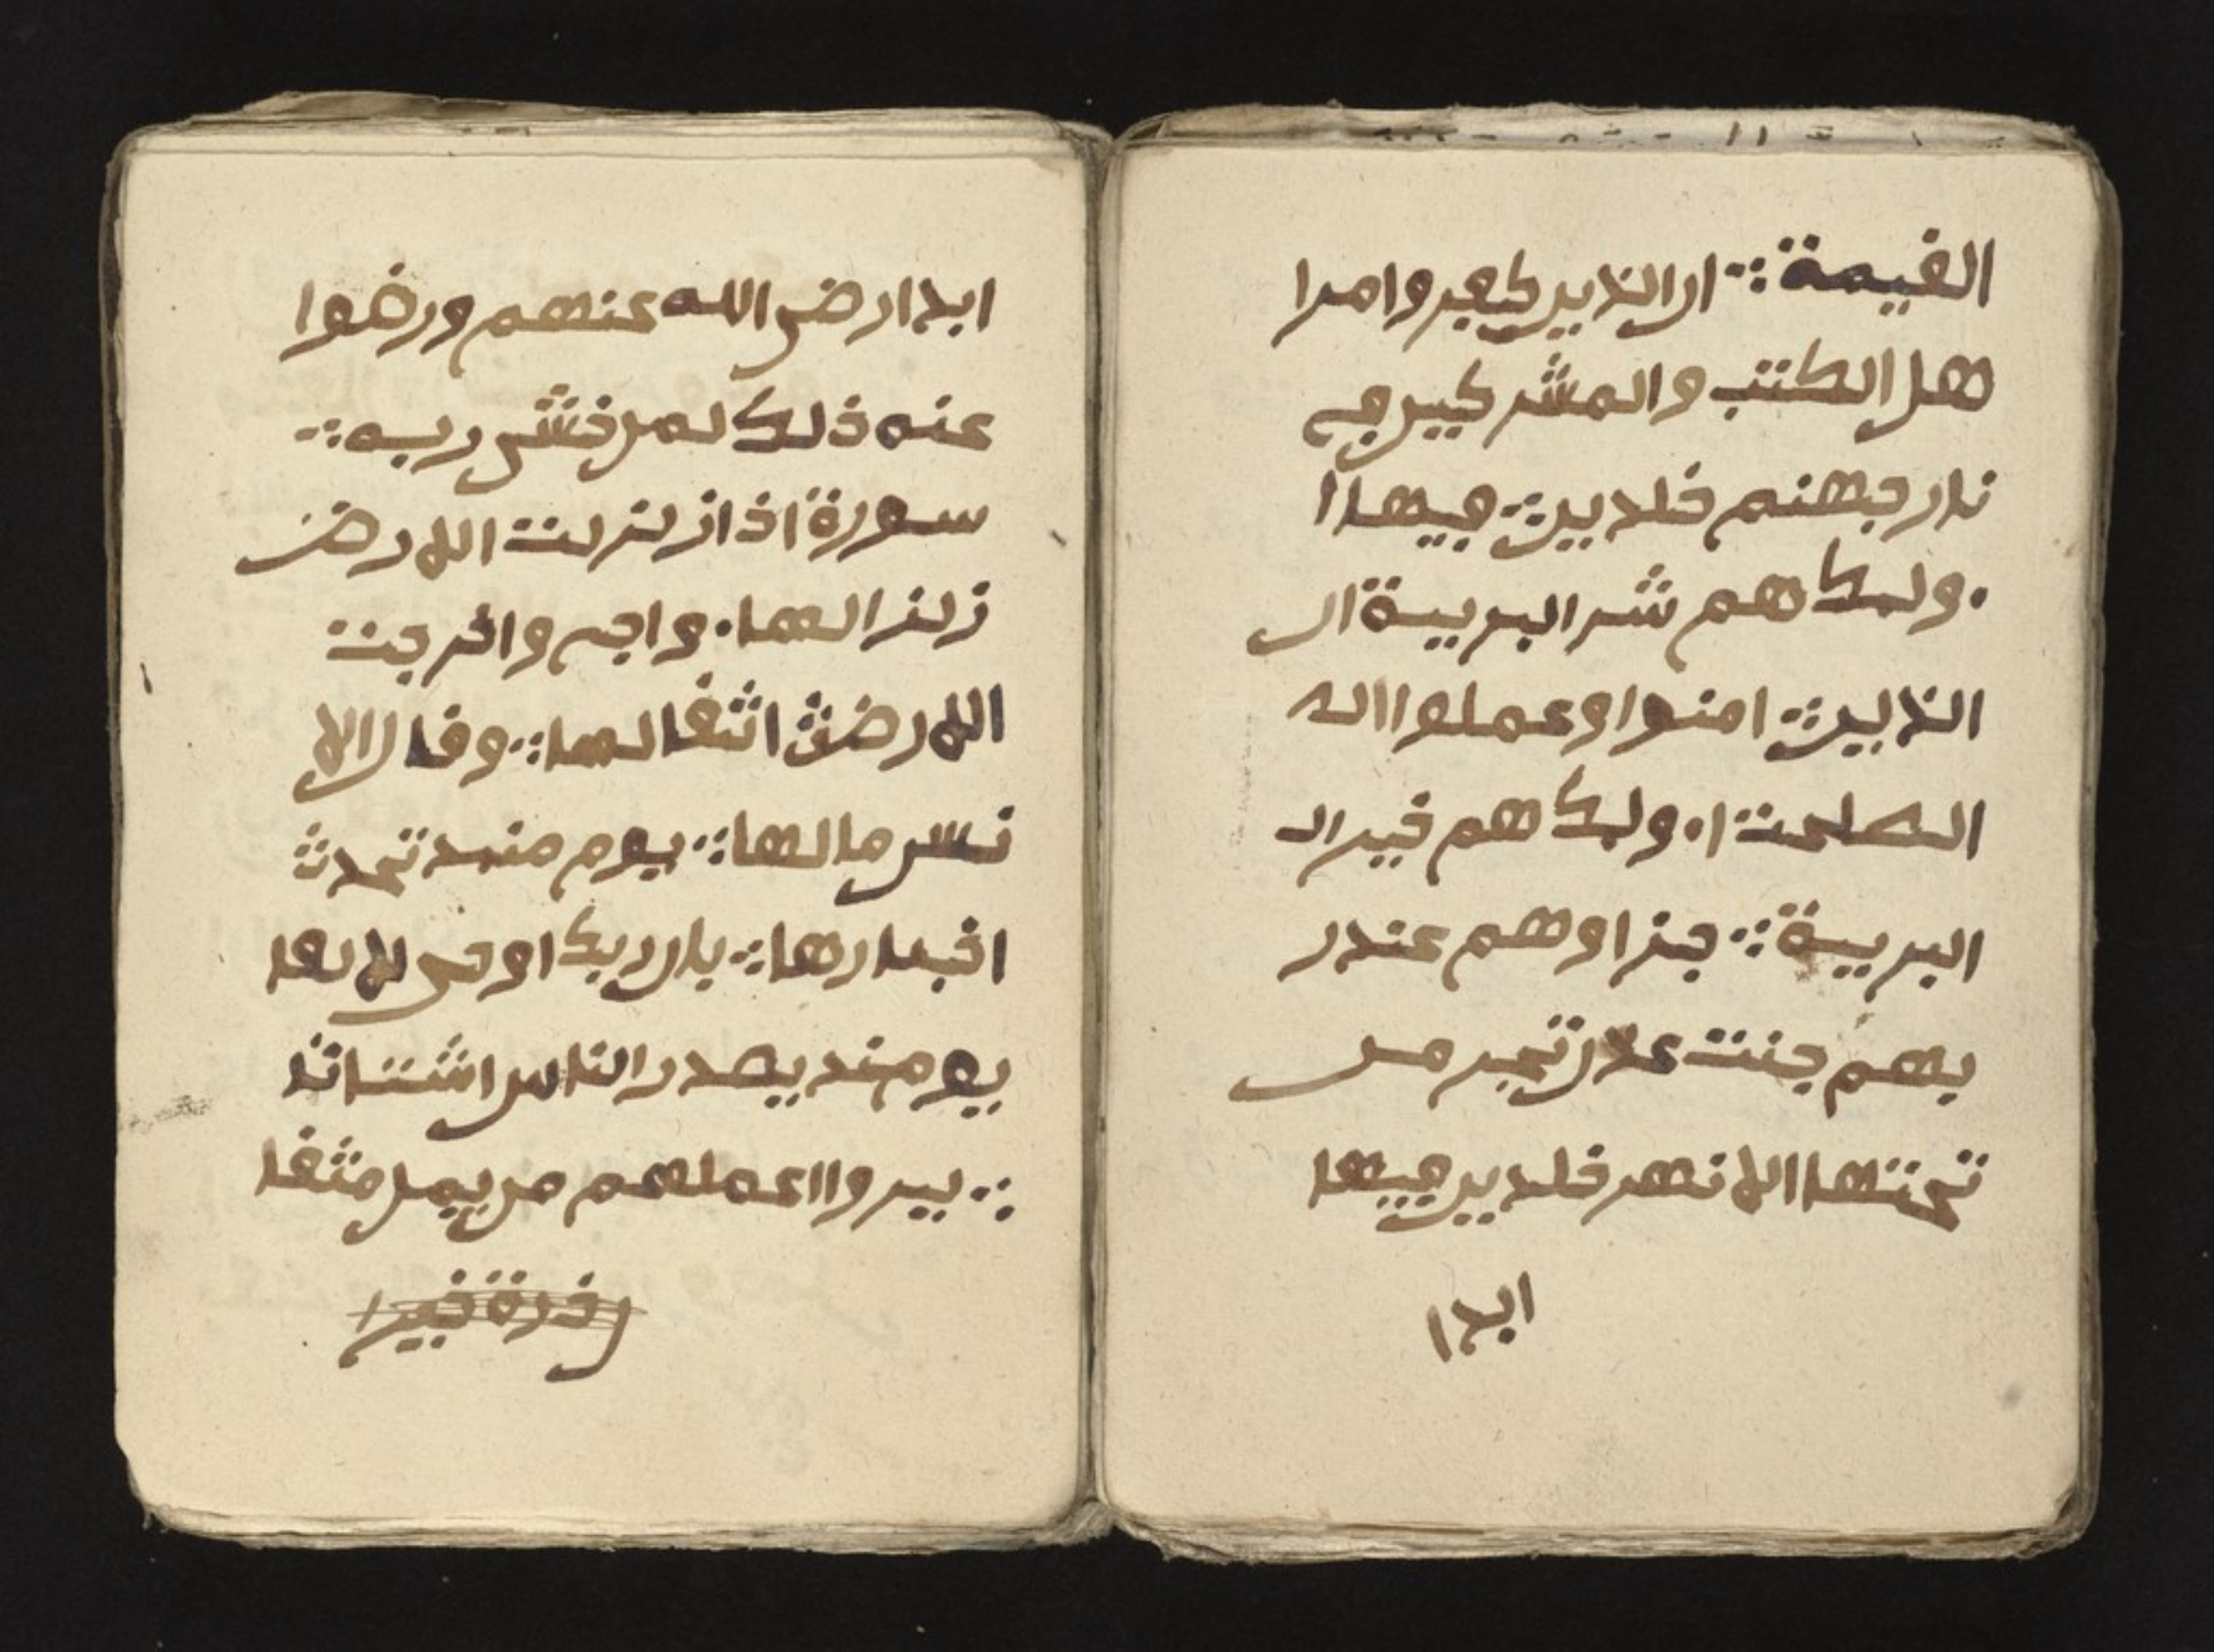 القيمة ∴ ان الذين كفروا من ا
هل الكتب والمشركين في
نار جهنم خلدين فيها ا
ولئك هم شر البرية ان
الذين امنوا وعملوا ال
الصلحت ا ولئك هم خير ال
البرية ∴ جزاوهم عند ر
بهم جنت عدن تجر من
تحتها الانهر خلدين فيها
ابدا
ابدا رض الله عنهم ورضوا
عنه ذلك لمن خشي ربه ∴
سورة اذا زلزلت الارض
زلزالها واخرجت
الارض اثقالها ∴ وقال الا
نسن مالها ∴ يوم منىد تحدث
اخبارها ∴ بان ربك اوحى لها
يومىد يصدر الناس اشتاتا
∴ ليروا اعملهم من يعمل مثقا
ل ذرة خيرا